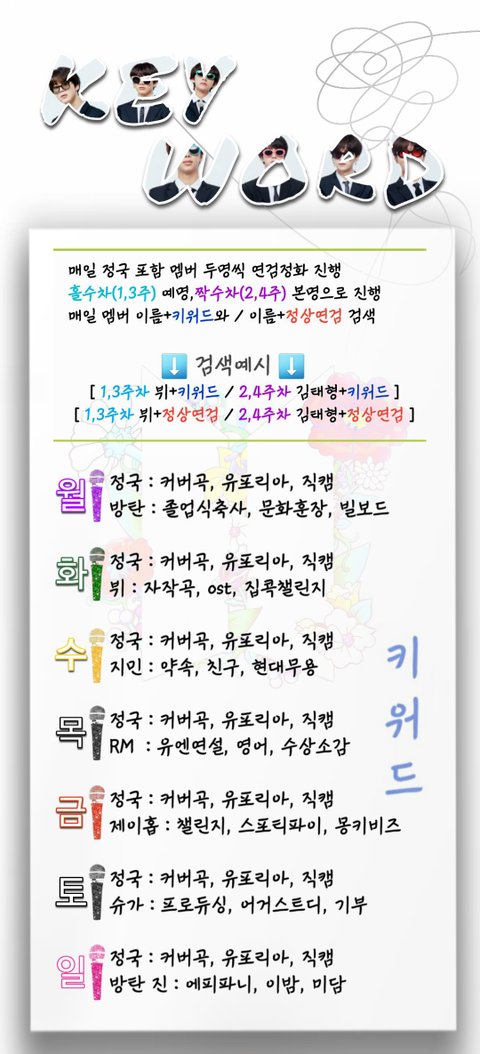 KEY
WORD
매일 정국 포함 멤버 두명씩 연검정화 진행
홀수차(1,3주) 예명,짝수차(2,4주) 본명으로 진행
매일 멤버 이름+키워드와 / 이름+정상연검 검색
⬇️ 검색예시 ⬇️
[ 1,3주차 뷔+키워드 / 2,4주차 김태형+키워드 ]
[ 1,3주차 뷔+정상연검 / 2,4주차 김태형+정상연검 ]
월 정국 : 커버곡, 유포리아, 직캠
방탄 : 졸업식축사, 문화훈장, 빌보드
화 정국 : 커버곡, 유포리아, 직캠
뷔 : 자작곡, ost, 집콕챌린지
수 정국 : 커버곡, 유포리아, 직캠
지민 : 약속, 친구, 현대무용
목 정국 : 커버곡, 유포리아, 직캠
RM : 유엔연설, 영어, 수상소감
금 정국 : 커버곡, 유포리아, 직캠
제이홉 : 챌린지, 스포티파이, 몽키비즈
토 정국 : 커버곡, 유포리아, 직캠
슈가 : 프로듀싱, 어거스트디, 기부
일 정국 : 커버곡, 유포리아, 직캠
방탄 진 : 에피파니, 이밤, 미담
키워드